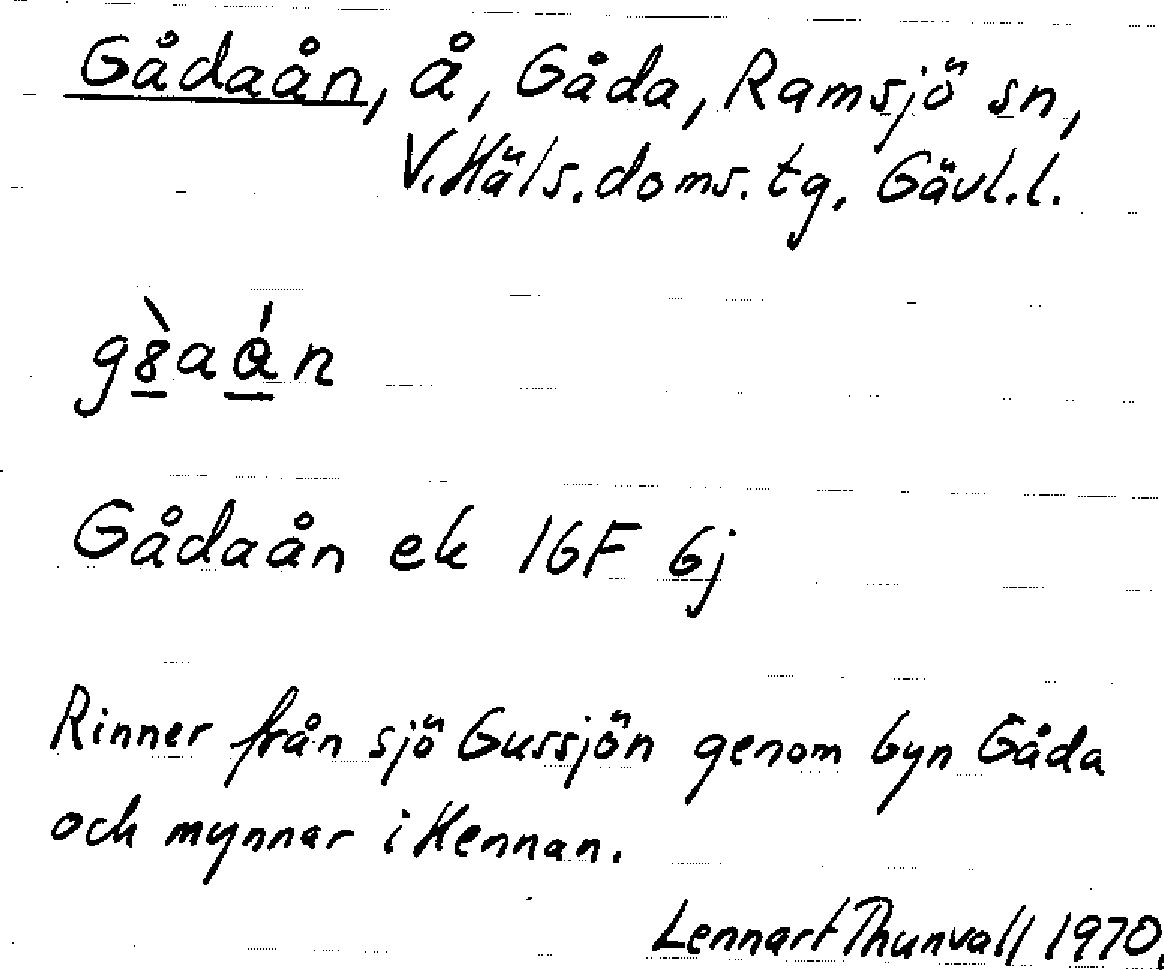 Gådaån, å, Gåda, Ramsjö sn,
V. Häls. doms. tg, Gävl. l.
g8̲̀aǻ̲n
Gådaån ek 16F 6j
Rinner från sjö Gussjön genom byn Gåda
och mynnar i Hennan.
Lennart Thunvall 1970.